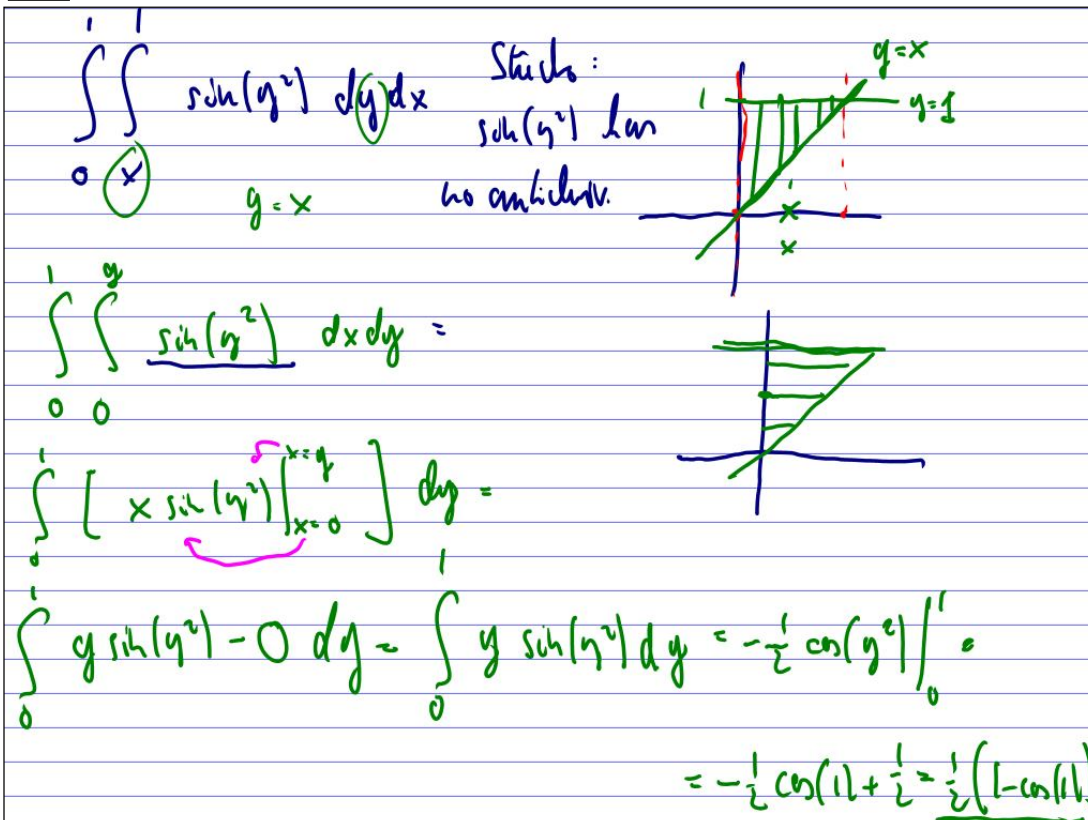 ∫₀¹ ∫ₓ¹ sin(y²) dy dx
y = x
sin(y²) has
no antideriv.
y=x
1
y=1
x
x
∫₀¹ ∫₀ʸ sin(y²) dx dy =
∫₀¹ [ x sin(y²) |ₓ₌₀ˣ⁼ʸ ] dy =
∫₀¹ y sin(y²) - 0 dy = ∫₀¹ y sin(y²) dy = -½ cos(y²) |₀¹ =
= -½ cos(1) + ½ = ½(1-cos(1))